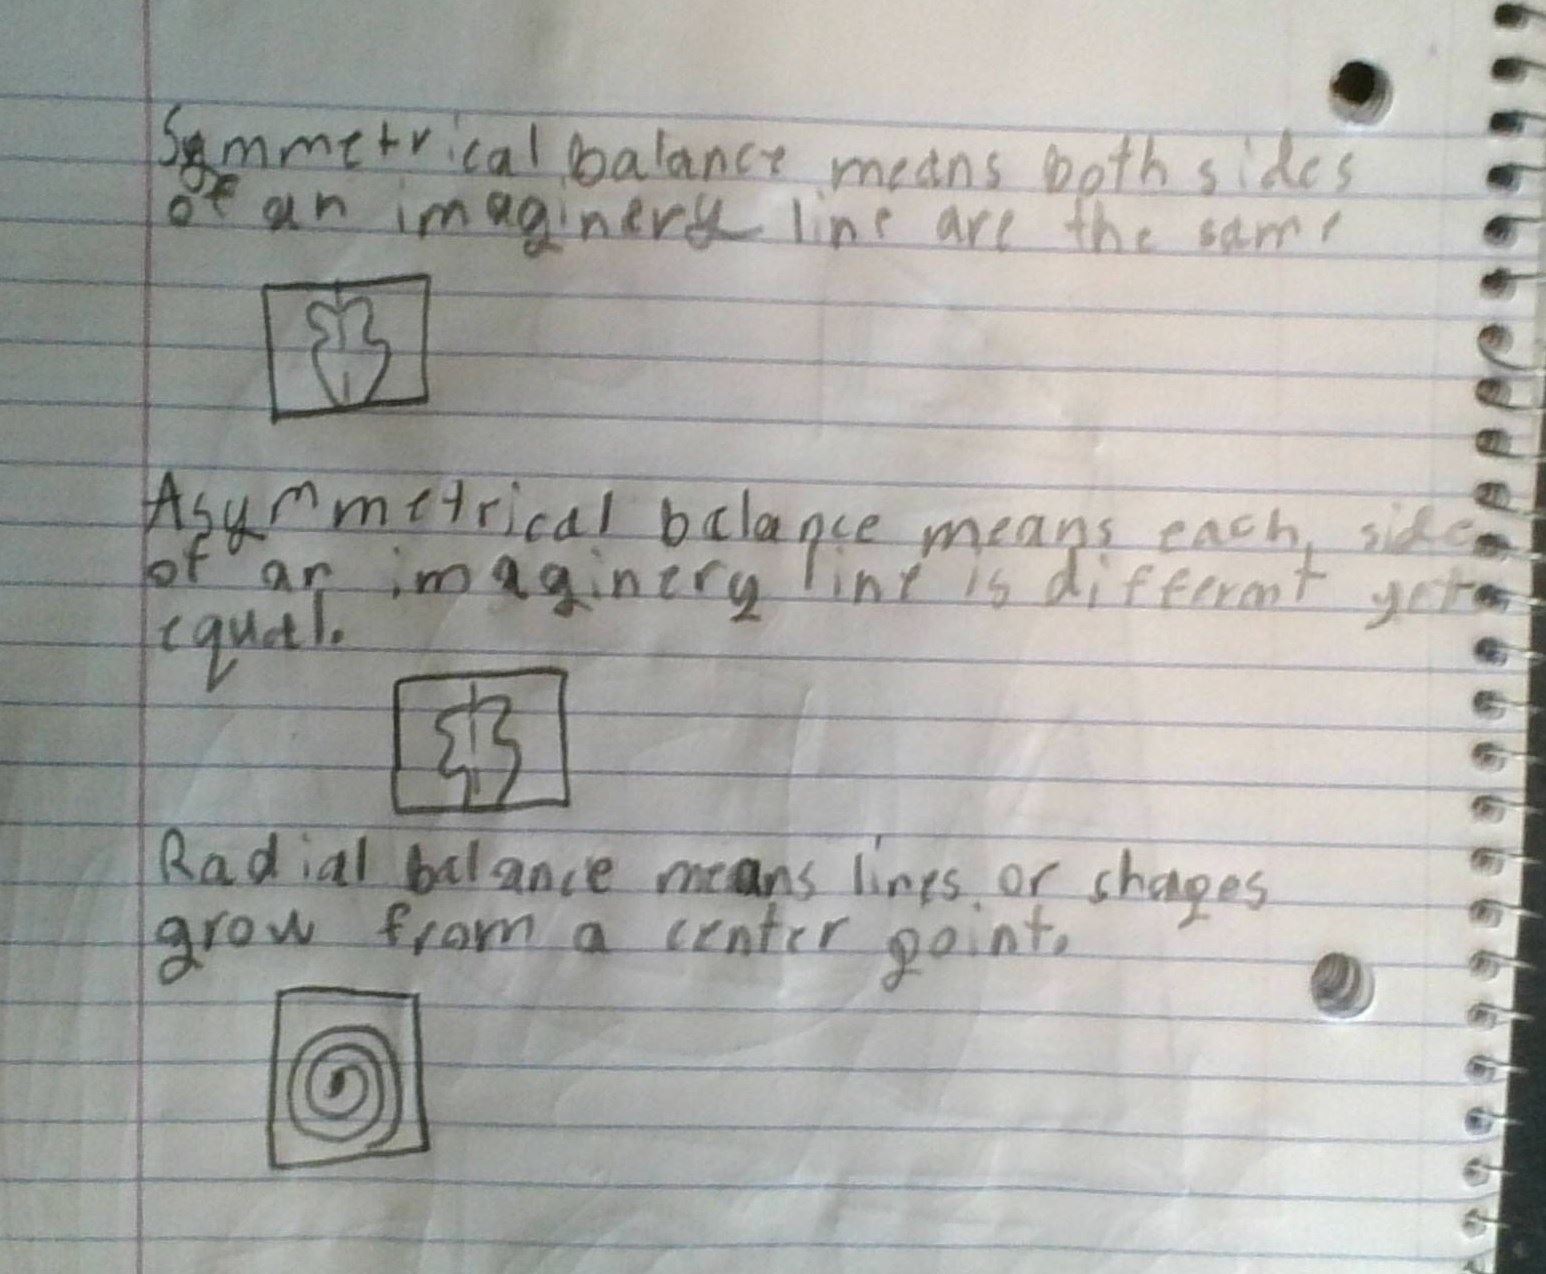 Symmetrical balance means both sides
of an imaginery line are the same
Asymmetrical balance means each side
of an imaginery line is different yet
equal.
Radial balance means lines or shapes
grow from a center point.